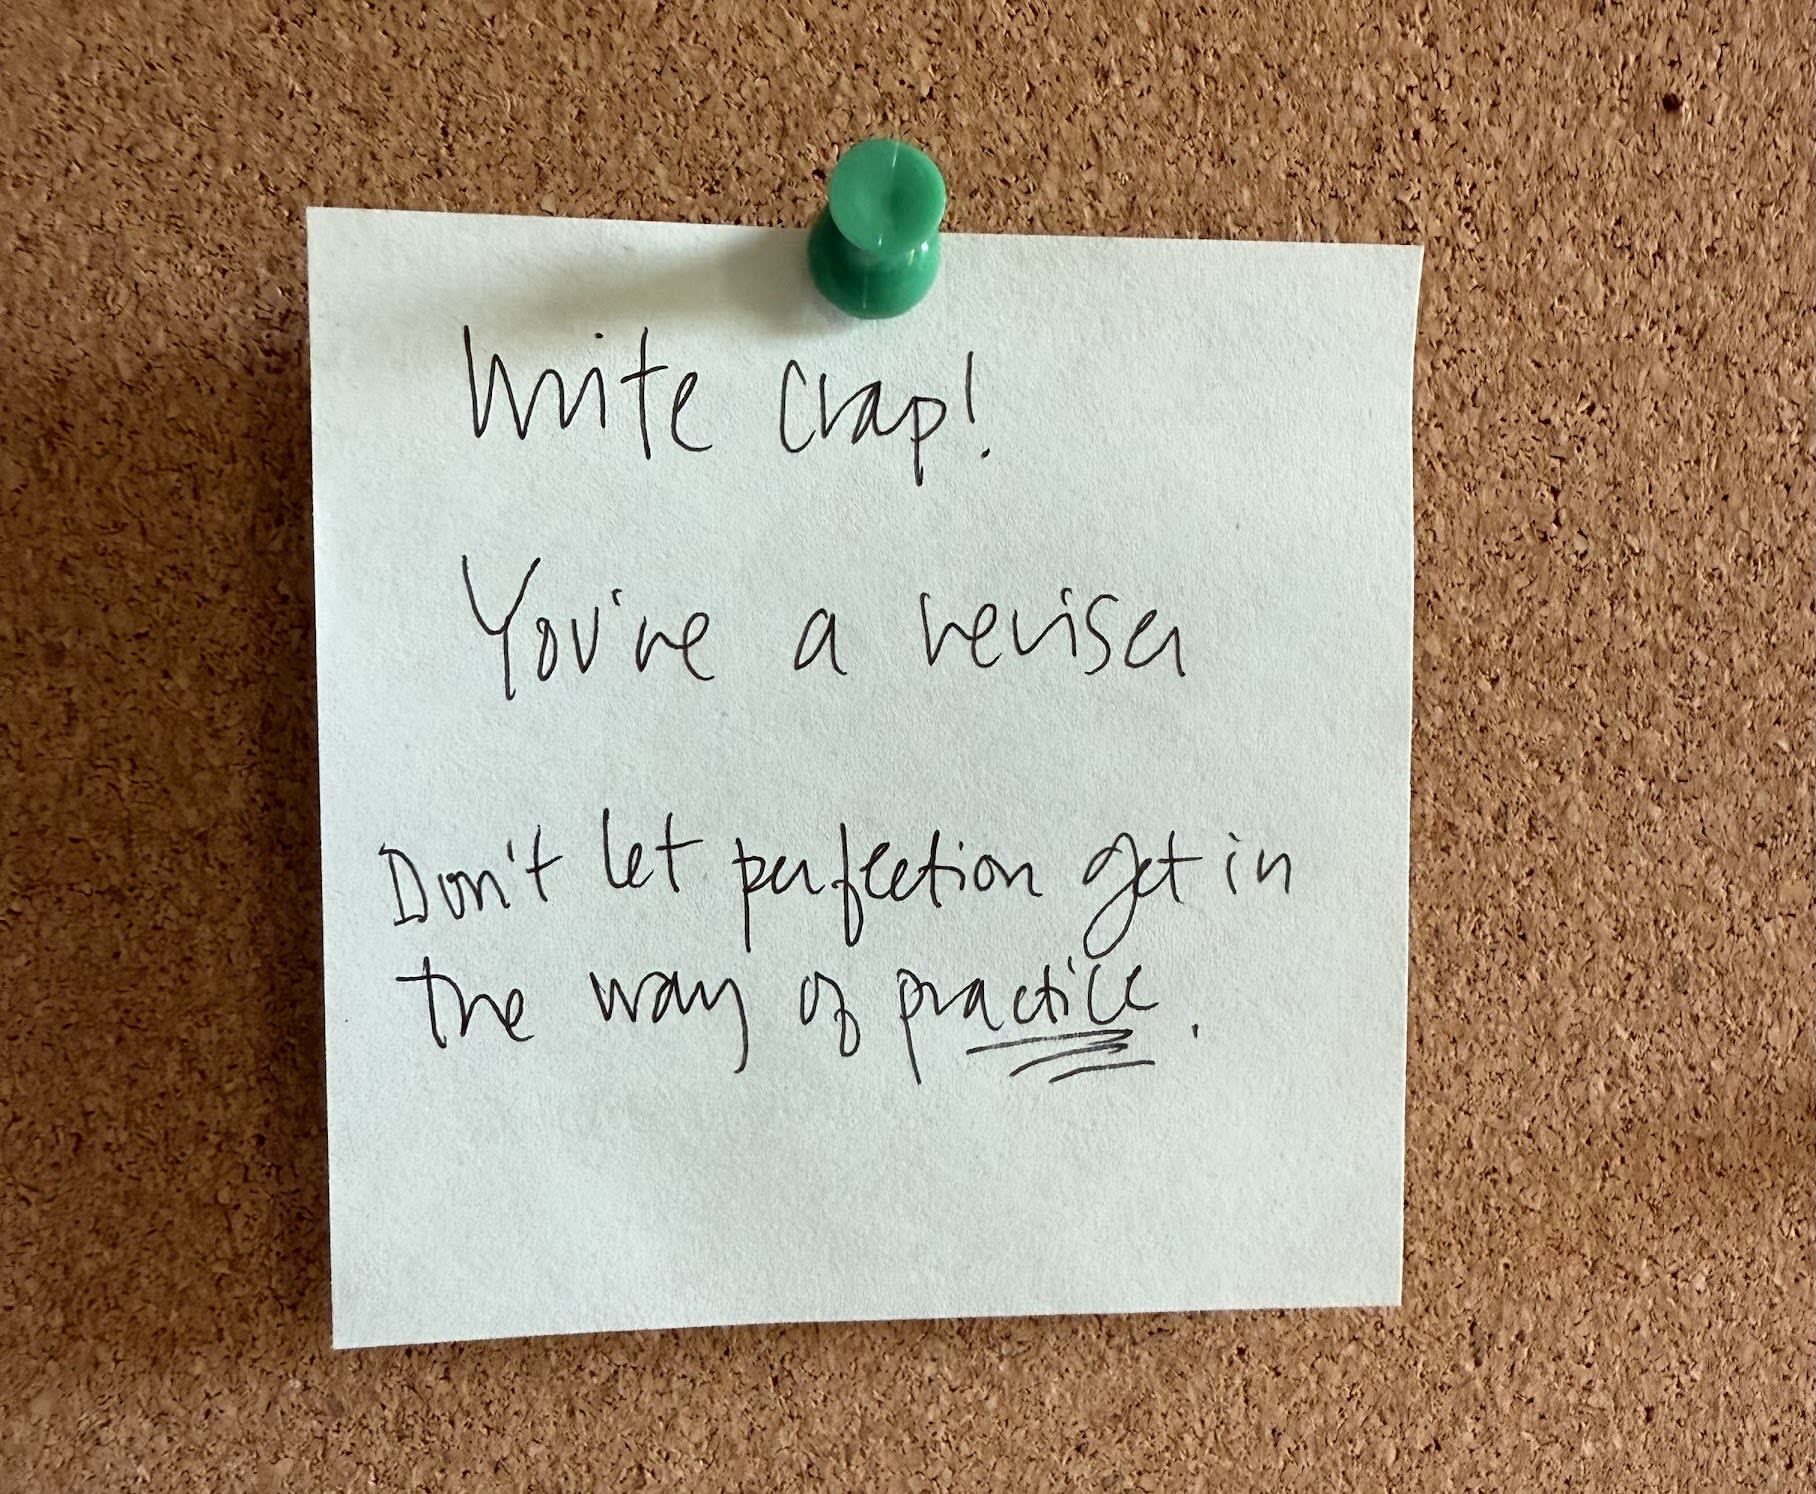 Write crap!
You're a reviser
Don't let perfection get in
the way of practice.